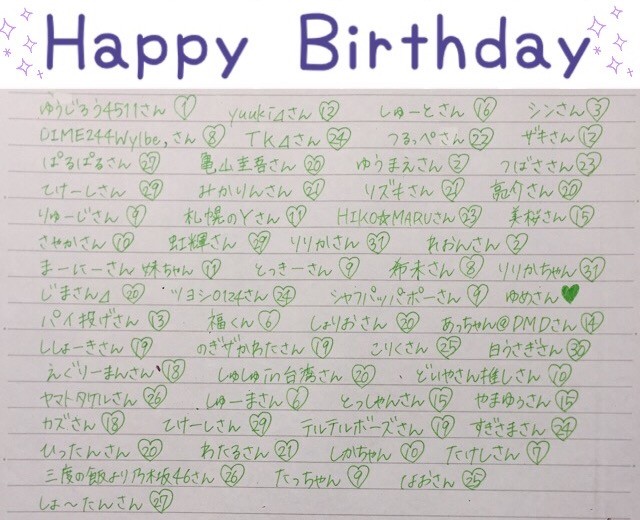 Happy Birthday
ゆうじろう4511さん 1 yuukiДさん 12 しゅーとさん 16 シンさん 3
DIME244Wylbe,さん 8 TKΔさん 24 つるっぺさん 22 ザキさん 12
ぱるぱるさん 27 亀山圭吾さん 20 ゆうまえさん 2 つばささん 23
てけーしさん 29 みかりんさん 21 リズキさん 21 さん 20
りゅーじさん 9 札幌のYさん 11 HIKO☆MARUさん 23 美桜さん 15
さやかさん 10 虹輝さん 29 りりかさん 31 れおんさん 2
まーにーさん 妹ちゃん 11 とっきーさん 9 希未さん 8 りりかちゃん 31
じまさんΔ 20 ツヨシ0124さん 24 シャフパッパポーさん 9 ゆめさん♥
パイ投げさん 13 福くん 6 しょりおさん 20 あっちゃん@DMDさん 14
ししょーきさん 19 のぎザかわたさん 19 こりくさん 25 白うさぎさん 30
えぐりーまんさん 18 しゅしゅin台湾さん 20 どいやさん推しさん 10
ヤマトタケルさん 26 しゅーまさん 6 とっしゃんさん 15 やまゆうさん 15
カズさん 18 てけーしさん 29 テルテルボーズさん 19 すぎさまさん 24
ひったんさん 20 わたるさん 21 しかちゃん 10 たけしさん 7
三度の飯より乃木坂46さん 26 たっちゃん 9 はおさん 25
しょ〜たんさん 27